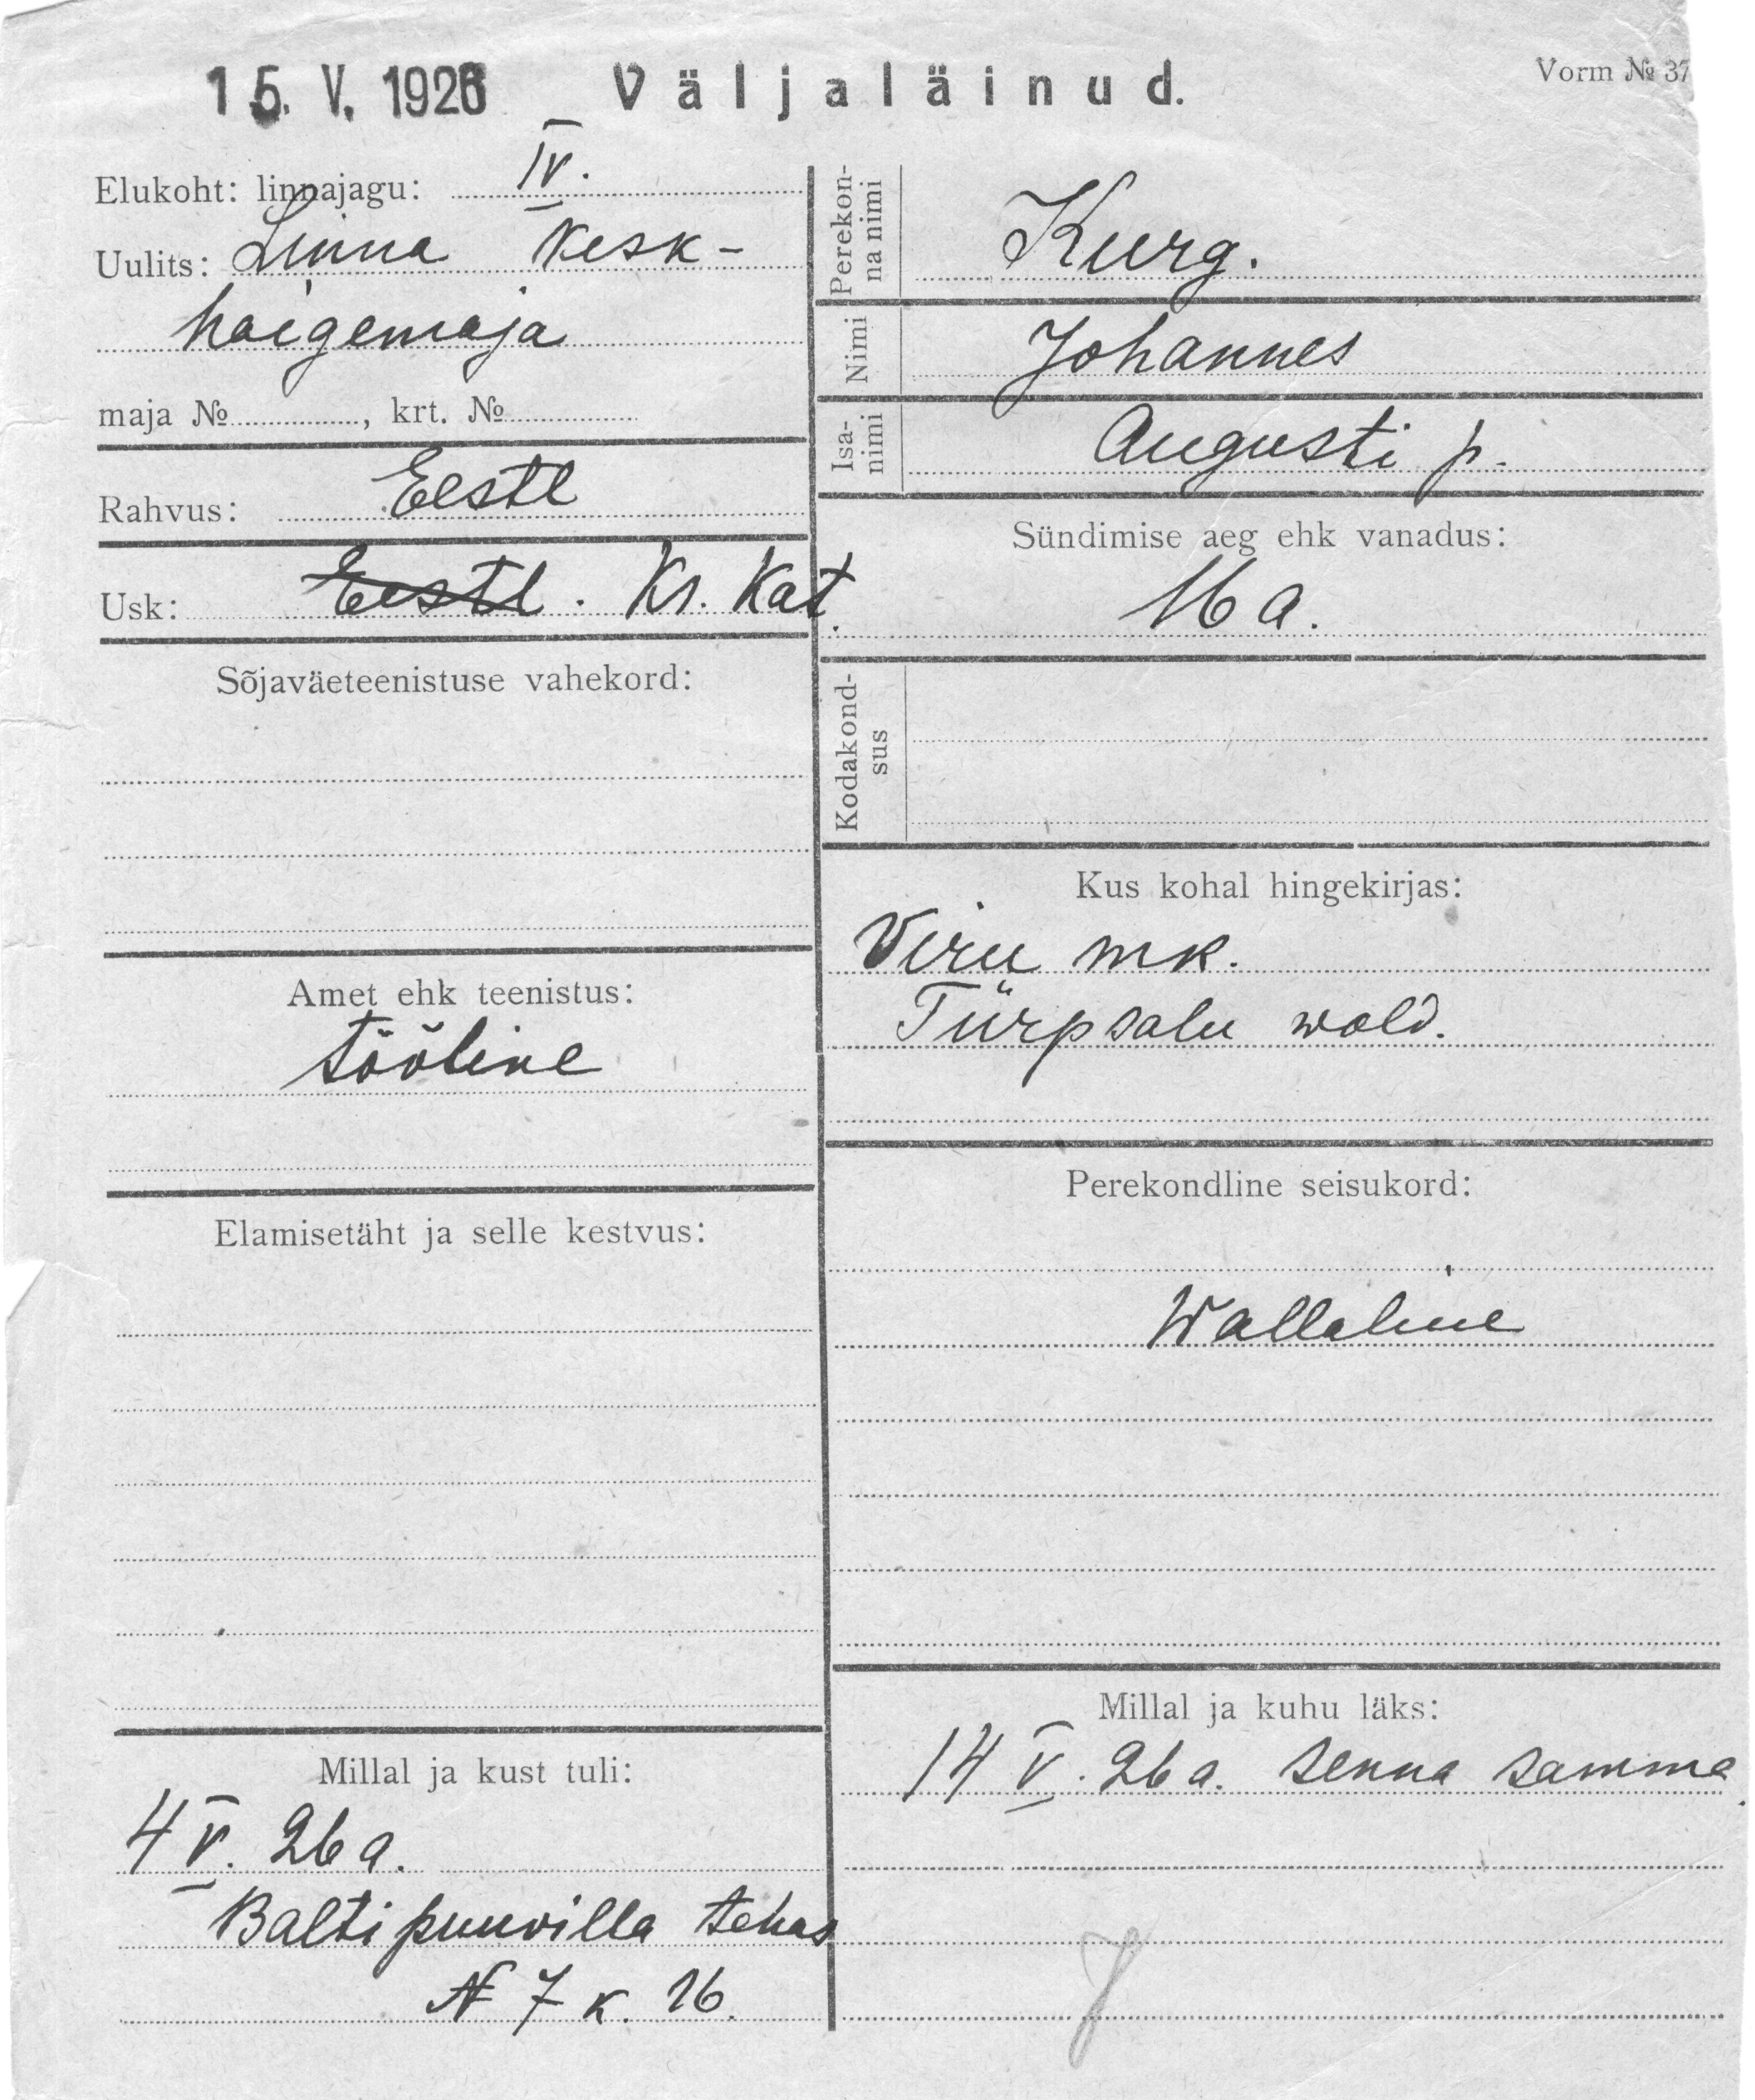 15. V. 1926 Väljaläinud.
Vorm № 37
Elukoht: linnajagu: IV.
Uulits: Linna Kesk-
haigemaja
maja №, krt. №
Rahvus: Eestl
Usk: Eestl. Kr. Kat.
Sõjaväeteenistuse vahekord:
Amet ehk teenistus:
tööline
Elamisetäht ja selle kestvus:
Millal ja kust tuli:
4 V. 26 a.
Balti puuvilla tehas
N 7 k. 16.
Perekon-
na nimi
Kurg.
Nimi
Johannes
Isa-
nimi
Augusti p.
Sündimise aeg ehk vanadus:
16 a.
Kodakond-
sus
Kus kohal hingekirjas:
Viru mk.
Türpsalu wald.
Perekondline seisukord:
Wallaline
Millal ja kuhu läks:
14 V. 26 a. senna samma.